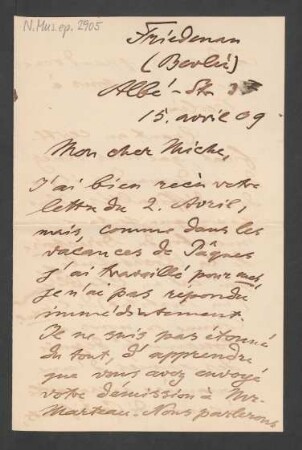 N. Mus. ep. 2905
Friedenau
(Berlin)
Albé-Str
15. avril 09
Mon cher Miche,
J'ai bien reçu votre
lettre du 2. Avril,
mais, comme dans les
vacances de Pâques
j'ai travaillé pour moi,
je n'ai pas répondu
immédiatement.
Je ne suis pas étonné
du tout, d'apprendre
que vous avez envoyé
votre démission à Mr.
Marteau. Nous parlerons